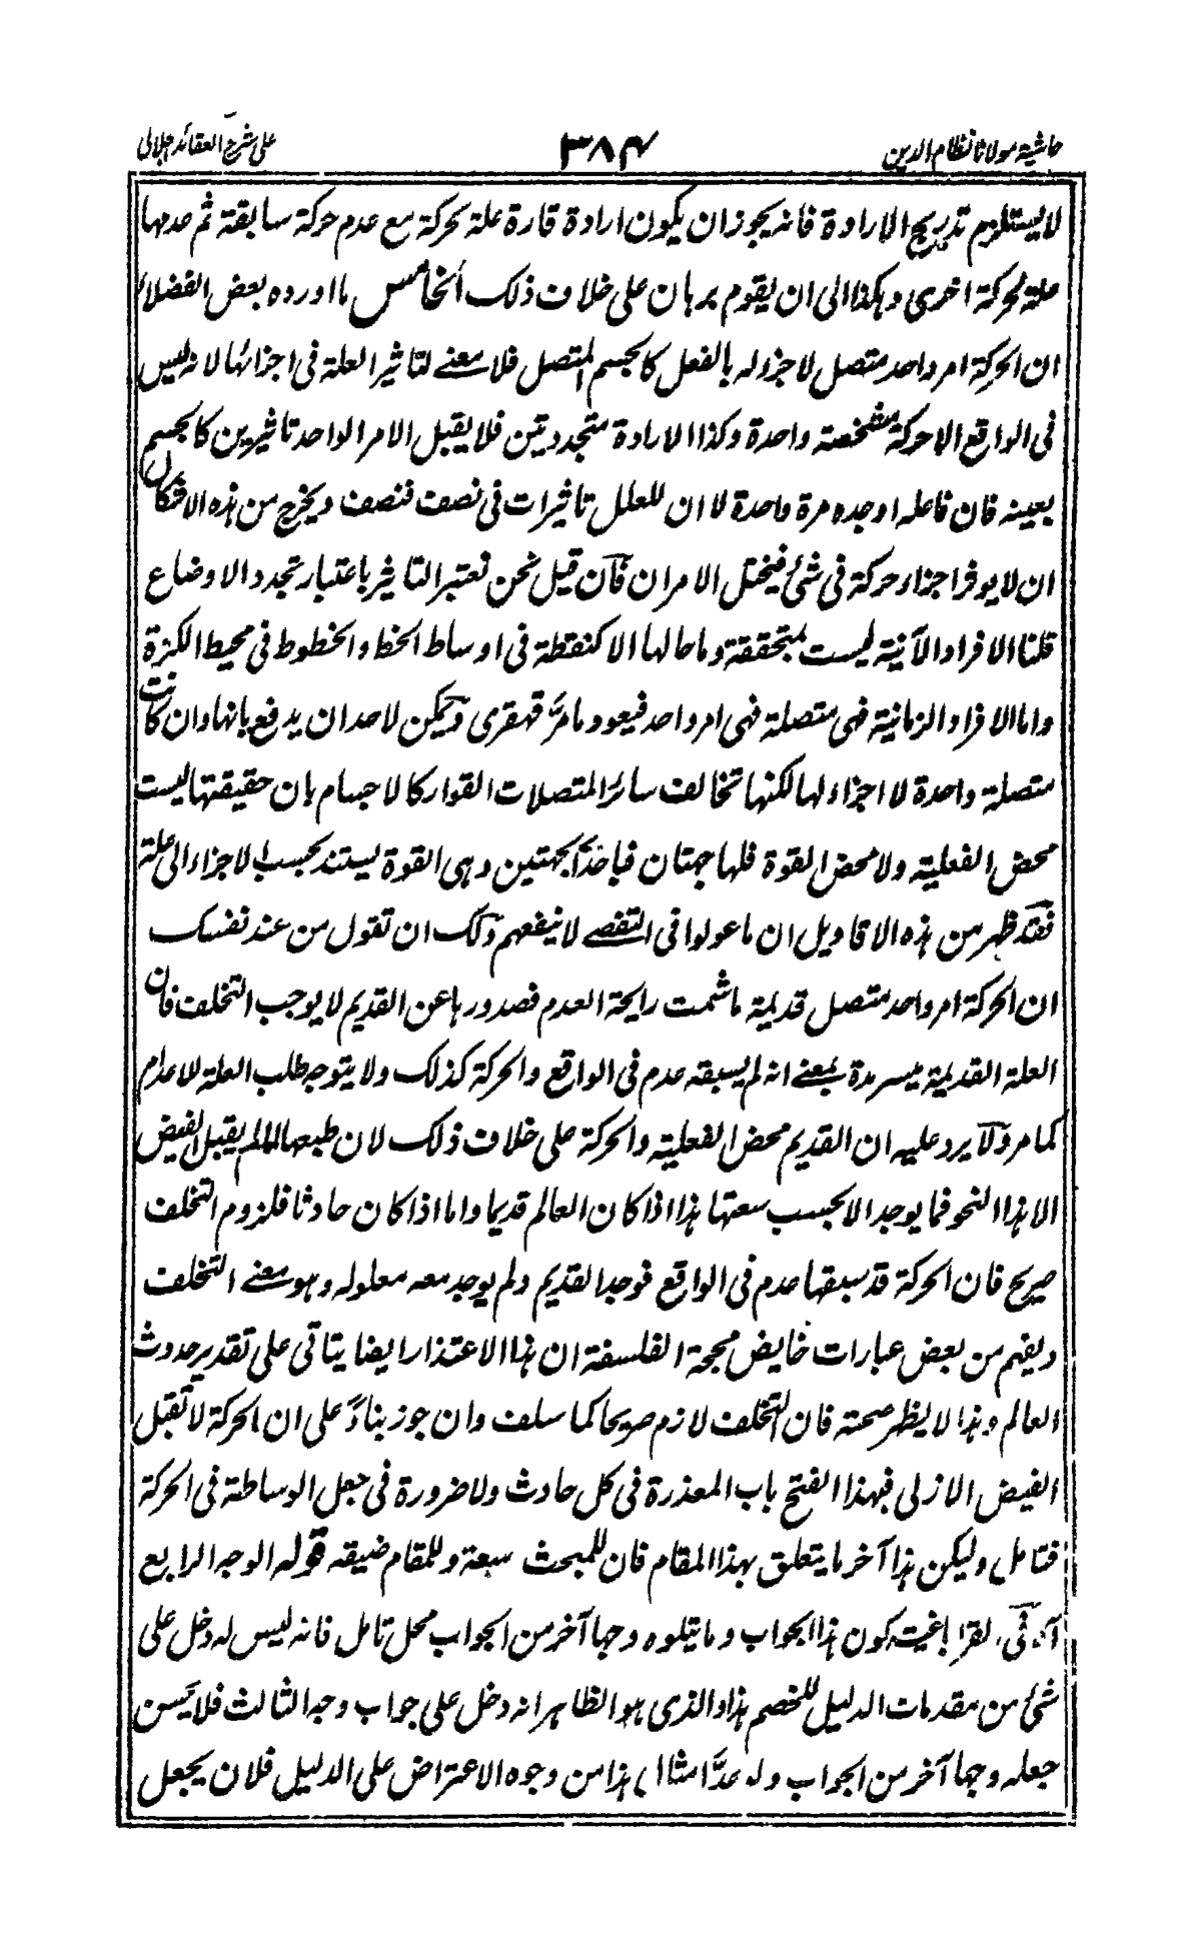 حاشیة مولانا نظام الدین ۳۸۴ علی شرح العقائد الجلالی
لا یستلزم تدریج الارادة فانه یجوز ان یکون ارادة قارة علة لحرکة مع عدم حرکة سابقة ثم عدمها
علة لحرکة اخری وهکذا الی ان یقوم برهان علی خلاف ذلک الخامس ما اورده بعض الفضلاء
ان الحرکة امر واحد متصل لا جزء له بالفعل کالجسم المتصل فلا معنے لتاثیر العلة فی اجزائها لانه لیس
فی الواقع الا حرکة مشخصة واحدة وکذا الارادة متجددیتین فلا یقبل الامر الواحد تاثیرین کالجسم
بعینه فان فاعله اوجده مرة واحدة لا ان للعلل تاثیرات فی نصف فنصف ویخرج من هذه الافکار
ان لا یوفر اجزاء حرکة فی شئ فیختل الامر ان فآن قیل نحن نعتبر التاثیر باعتبار تجدد الاوضاع
قلنا الافراد الآنیة لیست بمتحققة وما حالها الا کنقطة فی اوساط الخط والخطوط فی محیط الکرة
واما الافراد الزمانیة فهی متصلة فهی امر واحد فیعود ما مر قهقری ویمکن لاحد ان یدفع بانها وان کانت
متصلة واحدة لا اجزاء لها لکنها تخالف سائر المتصلات القوار کالاجسام بان حقیقتها لیست
محض الفعلیة ولا محض القوة فلها جهتان فباخذ الجهتین وهی القوة یستند بحسب الاجزاء الی علة
فقد ظهر من هذه الاقاویل ان ما عولوا فی التفصے لا ینفعهم ولک ان تقول من عند نفسک
ان الحرکة امر واحد متصل قدیمة ما شمت رایحة العدم فصدورها عن القدیم لا یوجب التخلف فان
العلة القدیمة میسرمدة بمعنے انه لم یسبقه عدم فی الواقع والحرکة کذلک ولا یتوجه طلب العلة للاعدام
کما مر ولا یرد علیه ان القدیم محض الفعلیة والحرکة علی خلاف ذلک لان طبعها لما لم یقبل الفیض
الا هذا النحو فما یوجد الا بحسب سعتها هذا اذا کان العالم قدیما واما اذا کان حادثا فلزوم التخلف
صریح فان الحرکة قد سبقها عدم فی الواقع فوجد القدیم ولم یوجد معه معلوله وهو معنے التخلف
ویفهم من بعض عبارات خایض لجة الفلسفة ان هذا الاعتذار ایضا یتاتی علی تقدیر حدوث
العالم وهذا لا یظهر صحته فان التخلف لازم صریحا کما سلف وان جوز بناءً علی ان الحرکة لا تقبل
الفیض الازلی فبهذا انفتح باب المعذرة فی کل حادث ولا ضرورة فی جعل الوساطة فی الحرکة
فتامل ولیکن هذا آخر ما یتعلق بهذا المقام فان للمبحث سعة وللمقام ضیقه قوله الوجه الرابع
آه فی کون هذا الجواب وما یتلوه وجها آخر من الجواب محل تامل فانه لیس له دخل علی
شئ من مقدمات الدلیل للخصم هذا والذی هو الظاهر انه دخل علی جواب وجه الثالث فلا یحسن
جعله وجها آخر من الجواب وله عدّ امثال هذا من وجوه الاعتراض علی الدلیل فلان یجعل